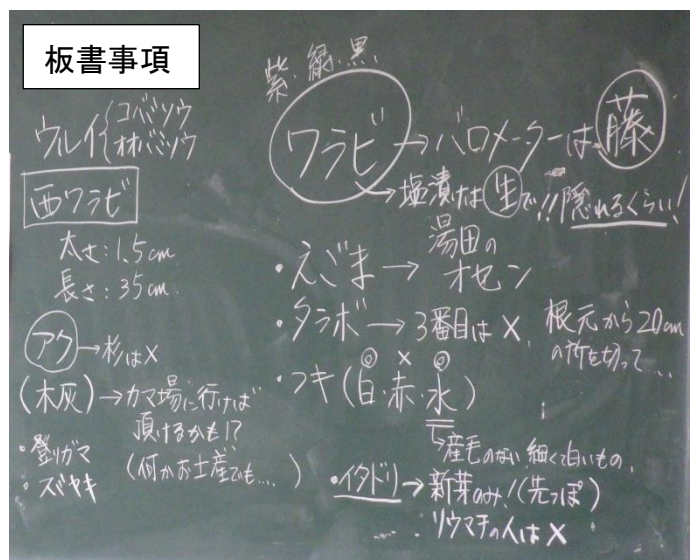 板書事項
ウルイ{コバギボウシ
オオバギボウシ
西ワラビ
太さ:1.5cm
長さ:35cm
アク→杉は×
(木灰)→カマ場に行けば
頂けるかも!?
(何かお土産でも....)
・登りガマ
・スミヤキ
紫、緑、黒
ワラビ→バロメーターは藤
→塩漬けは生で!!隠れるくらい!
・えごま→湯田の
オセン
・タラボ→3番目は×、根元から20cm
の所を切って....
◎ × ◎
・フキ(白・赤・水)
→産毛のない細くて白いもの、
・イタドリ→新芽のみ!(先っぽ)
リウマチの人は×